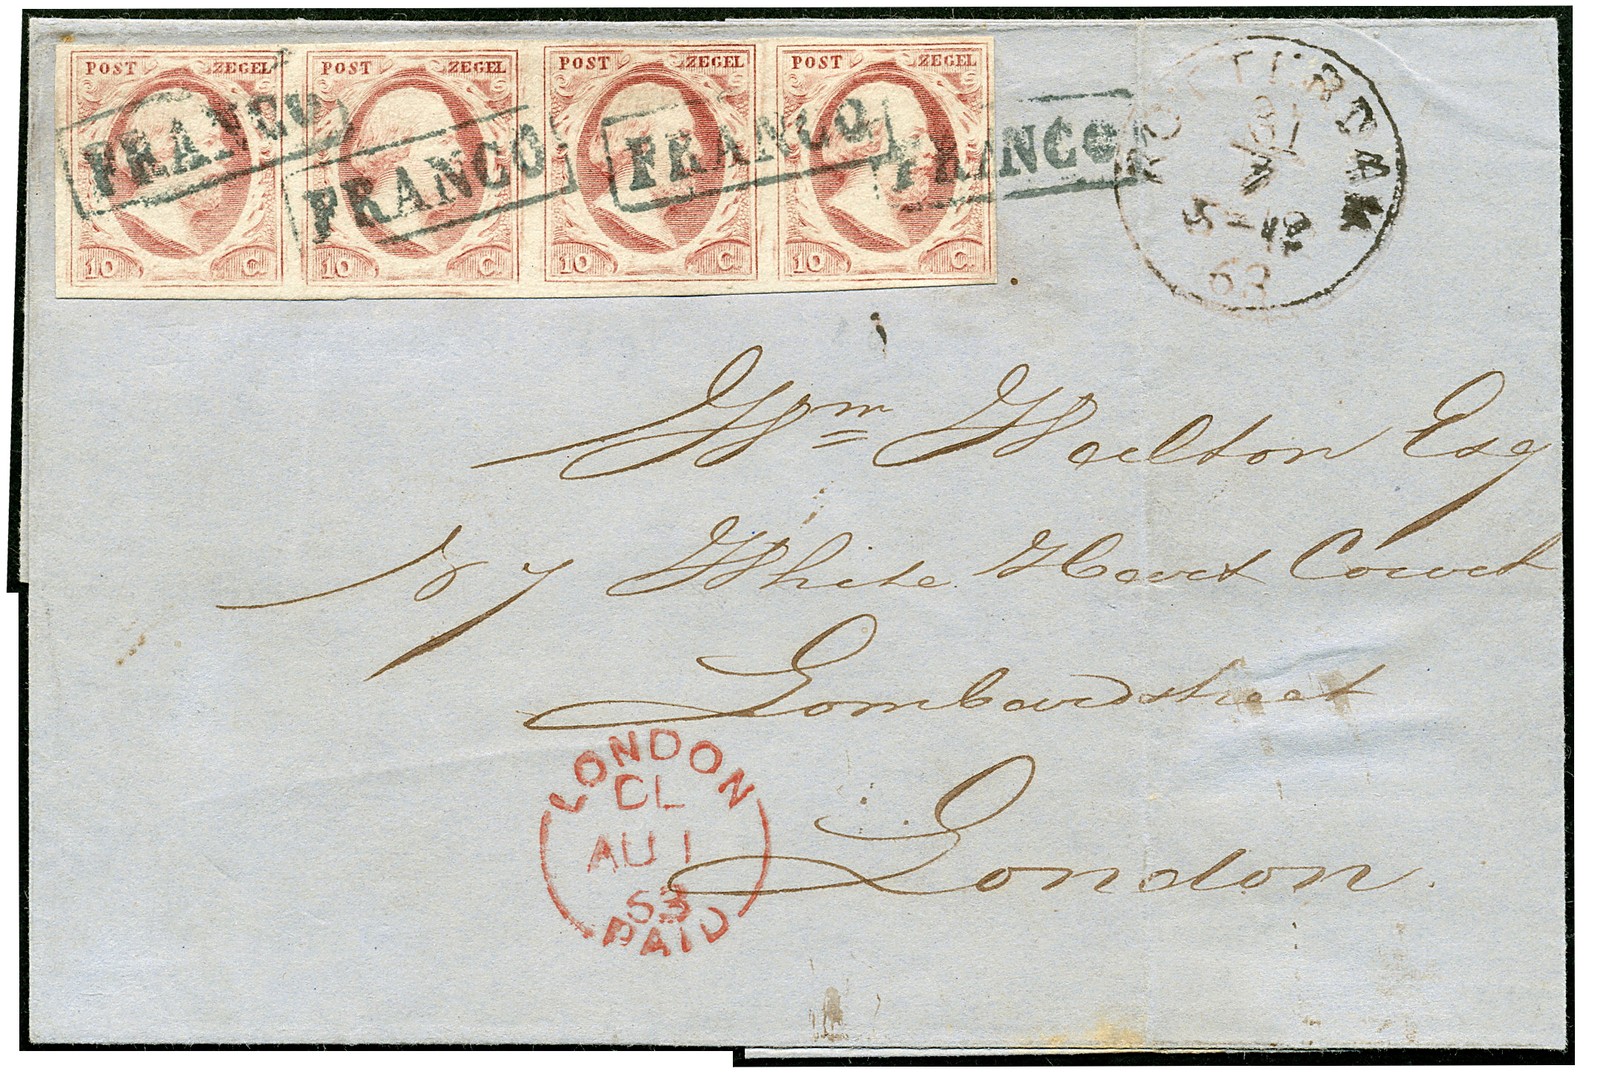 POST ZEGEL POST ZEGEL POST ZEGEL POST ZEGEL
FRANCO FRANCO FRANCO FRANCO
10 C. 10 C. 10 C. 10 C.
ROTTERDAM
31
7
63
Wm Welton Esq
No 7 White Hart Court
Lombardstreet
London.
LONDON
CL
AU 1
63
PAID